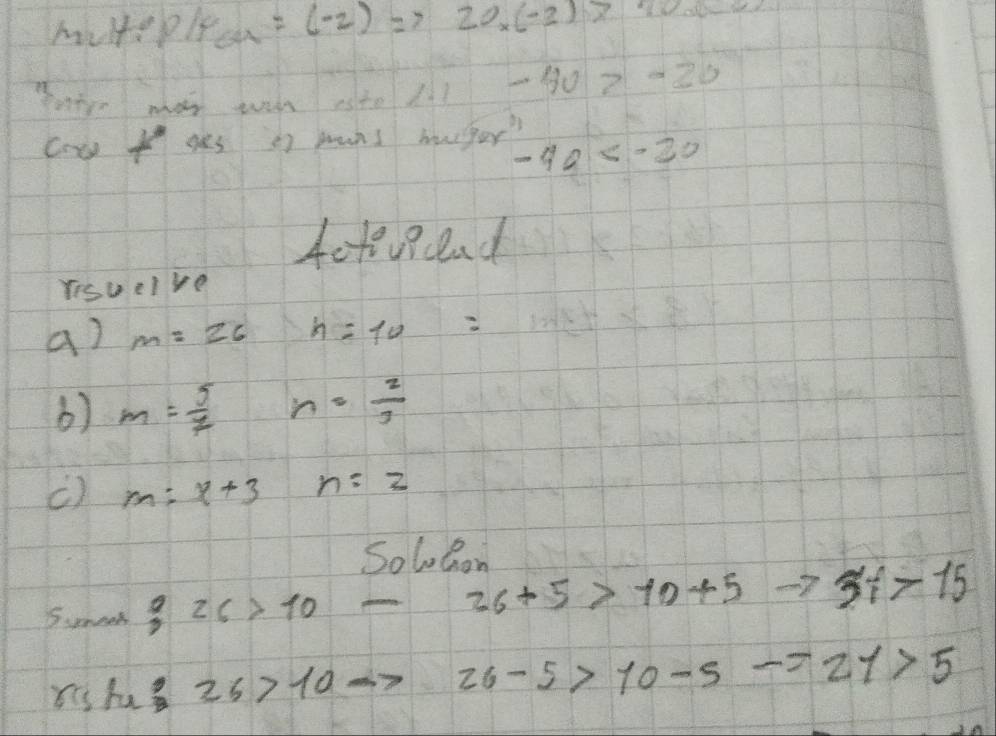 multiplica = (-2) => 20.(-2) >
"Entre mas esto
-40 > -20
es mas mayor"
-40 < -20
Actividad
resuelve
a) m = 26 n = 10 =
b) m = 5/7 n = 2/3
c) m = x+3 n = 2
Solución
suma: 26 > 10 — 26+5 > 10+5 -> 31 > 15
resta: 26 > 10 -> 26-5 > 10-5 -> 21 > 5